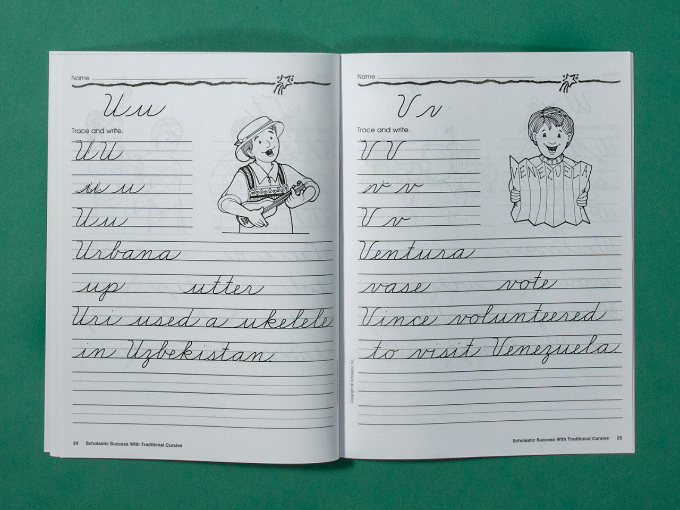 Name
Uu
Trace and write.
UU
u u
Uu
Urbana
up utter
Uri used a ukelele
in Uzbekistan
24 Scholastic Success With Traditional Cursive
Name
Vv
Trace and write.
VV
v v
V v
VENEZUELA
Ventura
vase vote
Vince volunteered
to visit Venezuela
Scholastic Success With Traditional Cursive 25